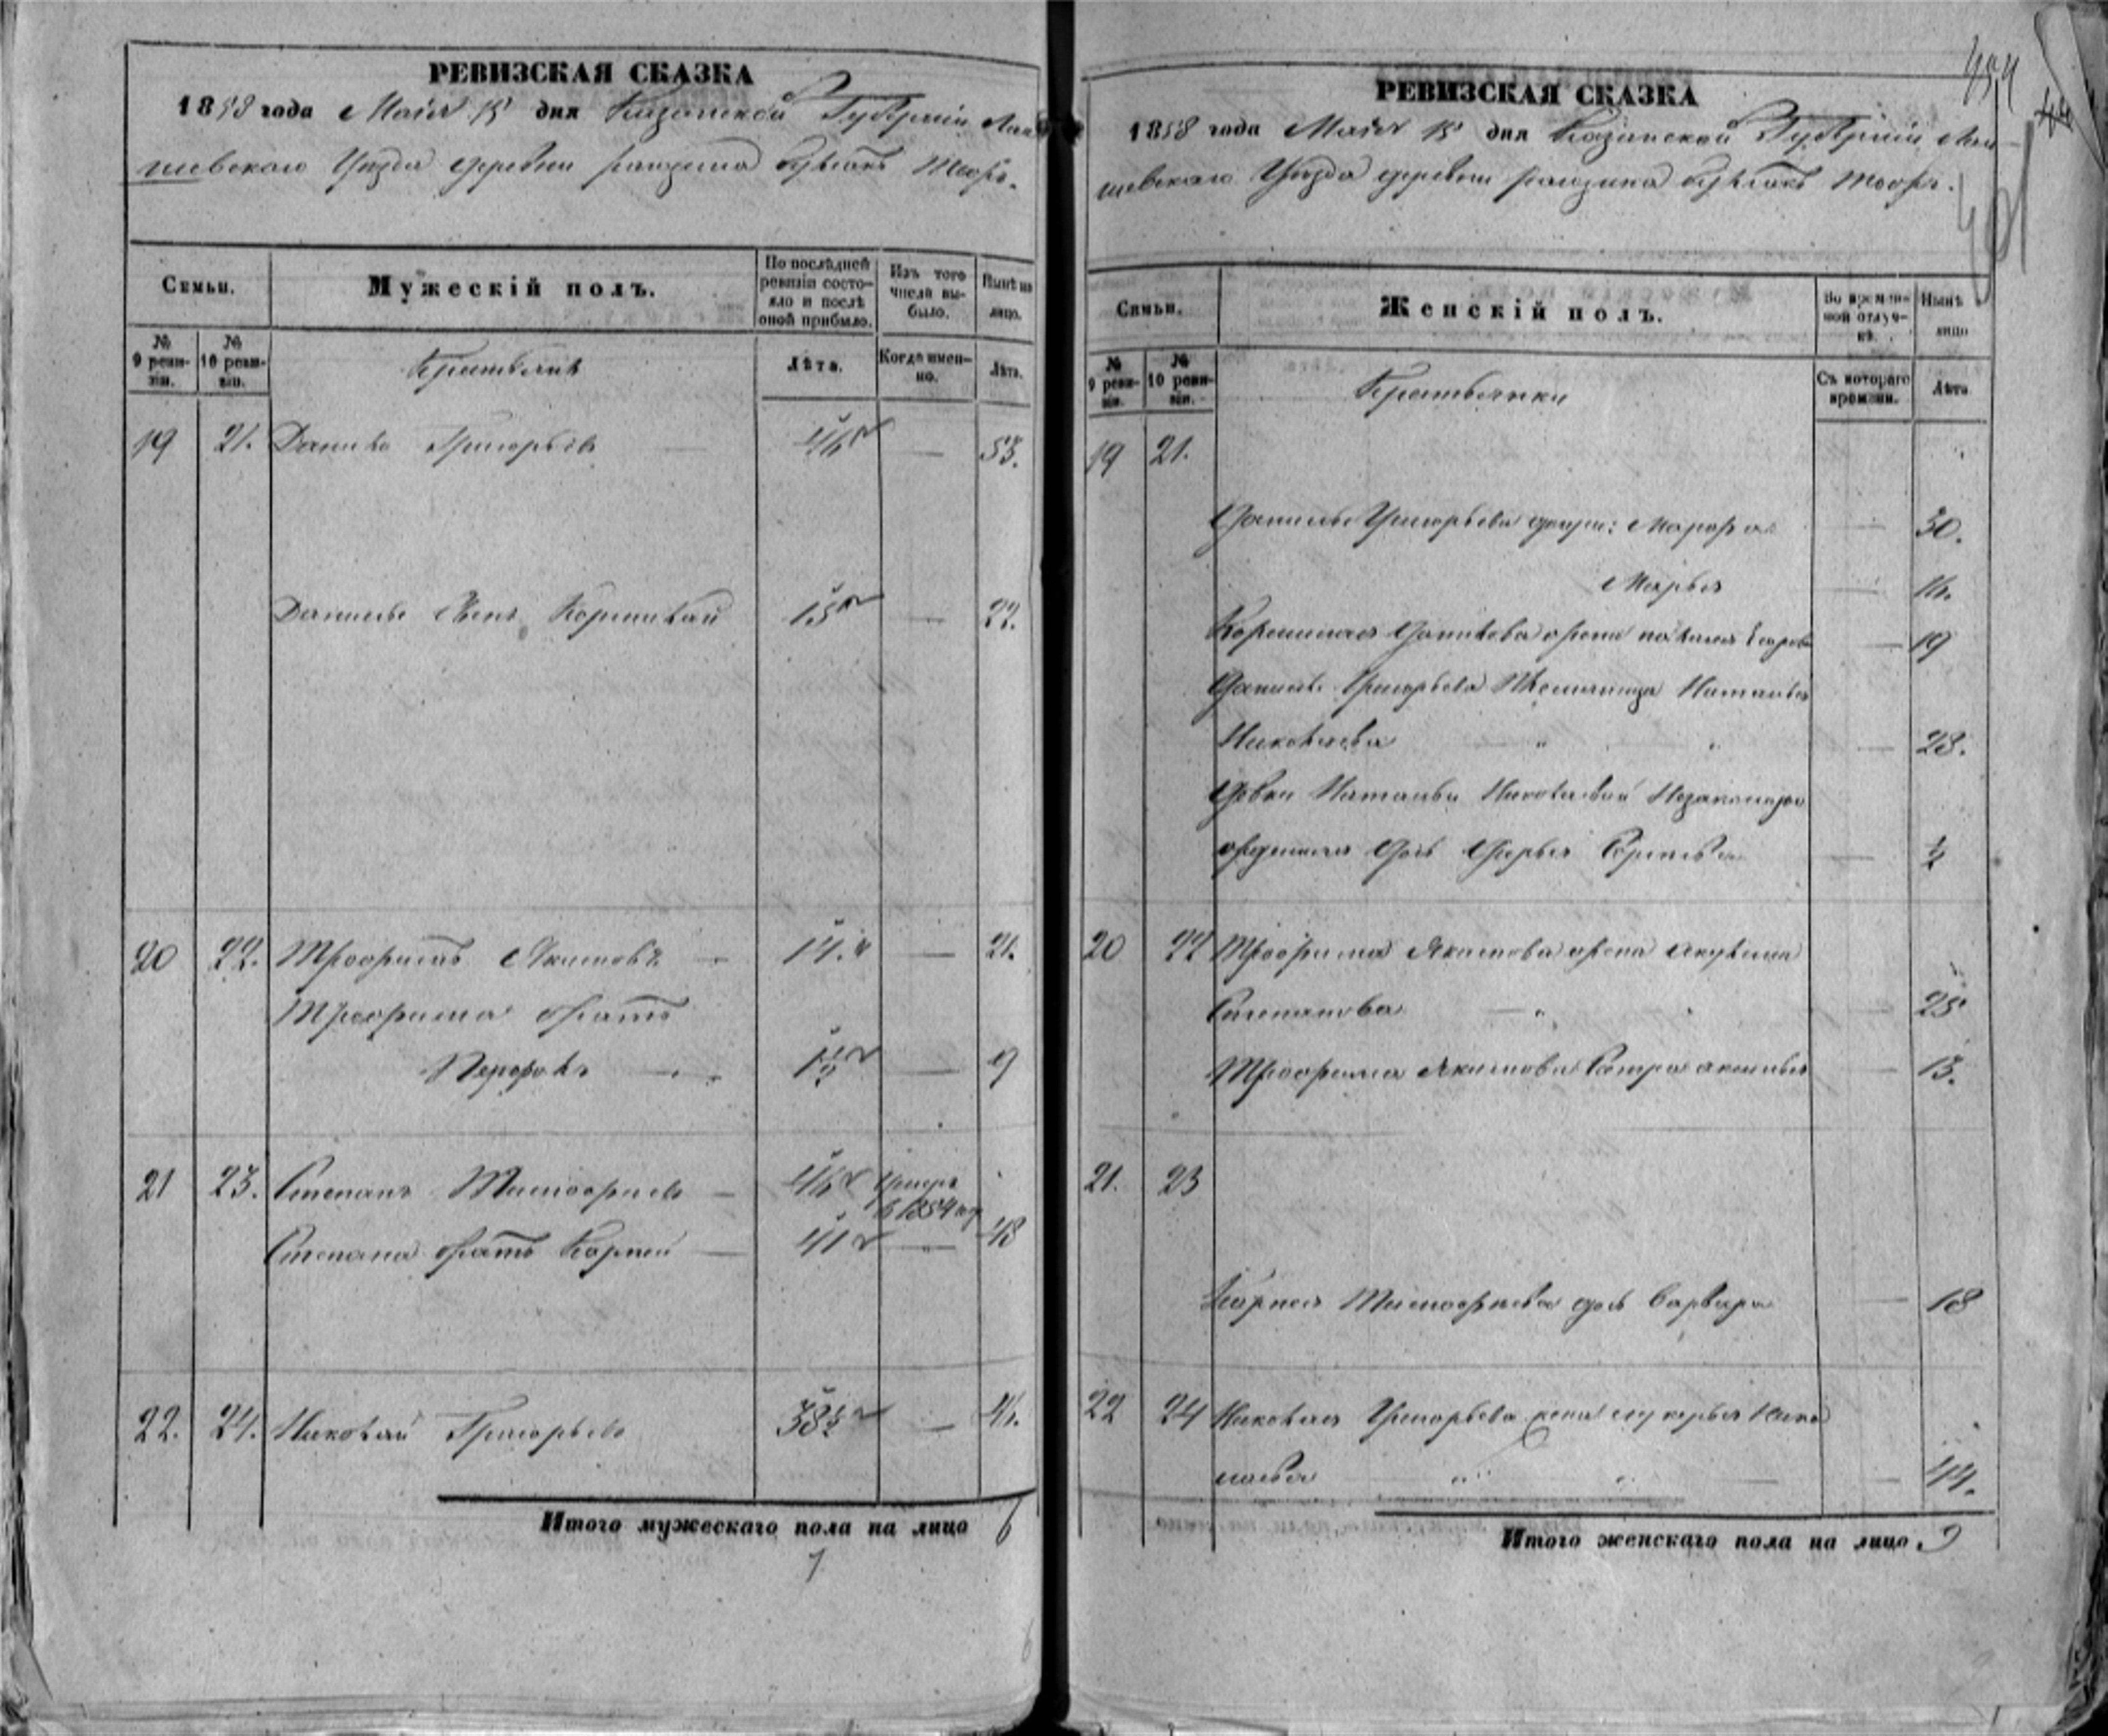 РЕВИЗСКАЯ СКАЗКА
1858 года Маія 15 дня Казанской Губерніи Лаи
шевскаго Уезда деревни
Семьи.
Мужескій полъ.
По послѣдней ревизіи состояло и послѣ оной прибыло.
Изъ того числа выбыло.
Нынѣ на лицо.
№ 9 ревизіи.
№ 10 ревизіи.
Крестьяне
Лѣта.
Когда именно.
Лѣта.
19 21. Данило Григорьевъ 46 — 53.
Данилы Сынъ 15 — 22.
20 22. Трофимъ Якимовъ — 14 — 21.
Трофима братъ
2 — 9
21 23. Степанъ Тимофѣевъ — 46 Умеръ
в 1854 год
Степана братъ Карпей — 41 — 48
22. 24. Николай Григорьевъ — 4
Итого мужескаго пола на лицо 6
7
454
РЕВИЗСКАЯ СКАЗКА
1858 года Маія 15 дня Казанской Губерніи Лаи
шевскаго Уезда деревни
Семьи.
Женскій полъ.
Во временной отлучкѣ.
Нынѣ на лицо
№ 9 ревизіи.
№ 10 ревизіи.
Крестьянки
Съ котораго времени.
Лѣта
19 21.
Данилы Григорьева дочери: Марфа — 30.
Марья — 16.
Данилова жена — 19
Данилы Григорьева Племянница Наталья
Николаева — 28.
Девки Натальи Николаевой Незаконоро
жденная Дочь Дарья — ½
20 22 Трофима Якимова жена Акулина
Степанова — 25
Трофима Якимова Сестра — 13.
21. 23
Карпея Тимофѣева дочь Варвара — 18
22 24 Николая Григорьева жена Лукерья Нико
лаева — 44.
Итого женскаго пола на лицо. 9